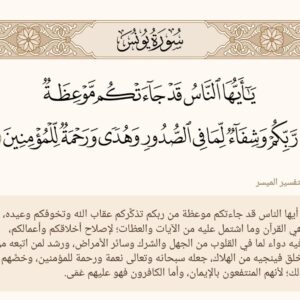 سُورَةُ يُونُسَ
يَٰٓأَيُّهَا ٱلنَّاسُ قَدْ جَآءَتْكُم مَّوْعِظَةٌ
رَّبِّكُمْ وَشِفَآءٌ لِّمَا فِى ٱلصُّدُورِ وَهُدًى وَرَحْمَةٌ لِّلْمُؤْمِنِينَ
تفسير الميسر
أيها الناس قد جاءتكم موعظة من ربكم تذكّركم عقاب الله وتخوفكم وعيده،
هي القرآن وما اشتمل عليه من الآيات والعظات؛ لإصلاح أخلاقكم وأعمالكم،
فيه دواء لما في القلوب من الجهل والشرك وسائر الأمراض، ورشد لمن اتبعه من
خلق فينجيه من الهلاك، جعله سبحانه وتعالى نعمة ورحمة للمؤمنين، وخصَّهم
لك؛ لأنهم المنتفعون بالإيمان، وأما الكافرون فهو عليهم عَمَى.